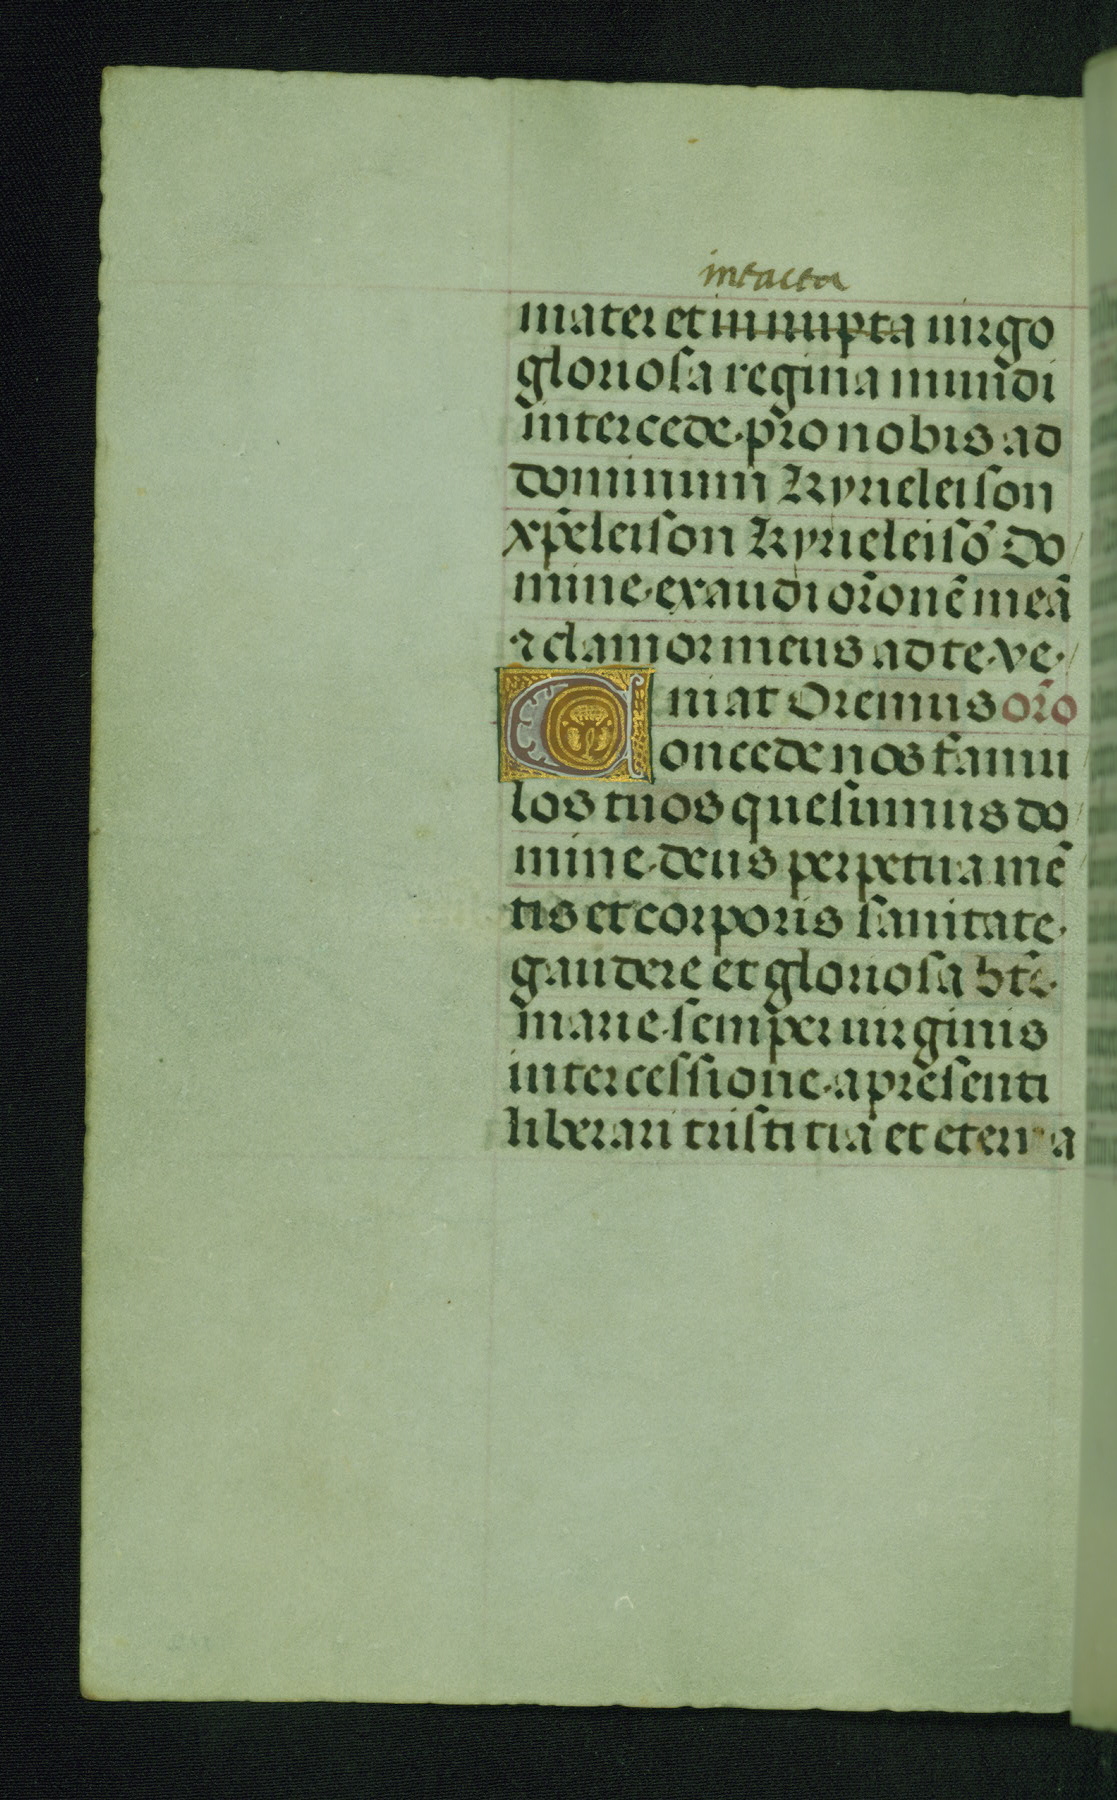 intacta
mater et innupta uirgo
gloriosa regina mundi
intercede pro nobis ad
dominum Kyrieleison
xp̄eleison Kyrieleisō Do
mine exaudi or̄onē meā
⁊ clamor meus ad te ve
niat Oremus or̄o
Concede nos famu
los tuos quesumus do
mine deus perpetua mē
tis et corporis sanitate
gaudere et gloriosa bt̄e
marie semper uirginis
intercessione a presenti
liberari tristitia et eterna